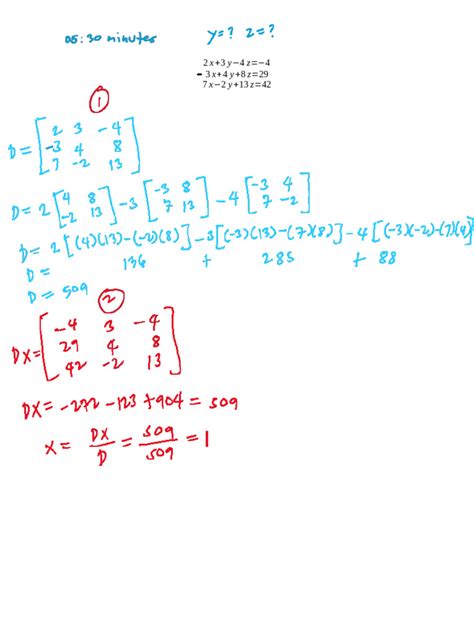 05:30 minutes y=? z=?
2x+3y−4z=−4
- 3x+4y+8z=29
7x−2y+13z=42
①
D= [ 2 3 -4
-3 4 8
7 -2 13 ]
D= 2 [ 4 8 -2 13 ] -3 [ -3 8 7 13 ] -4 [ -3 4 7 -2 ]
D= 2[(4)(13)-(-2)(8)]-3[(-3)(13)-(7)(8)]-4[(-3)(-2)-(7)(4)]
D= 136 + 285 + 88
D= 509
②
DX= [ -4 3 -4
29 4 8
42 -2 13 ]
DX= -272 -123 +904 = 509
x= DX/D = 509/509 = 1